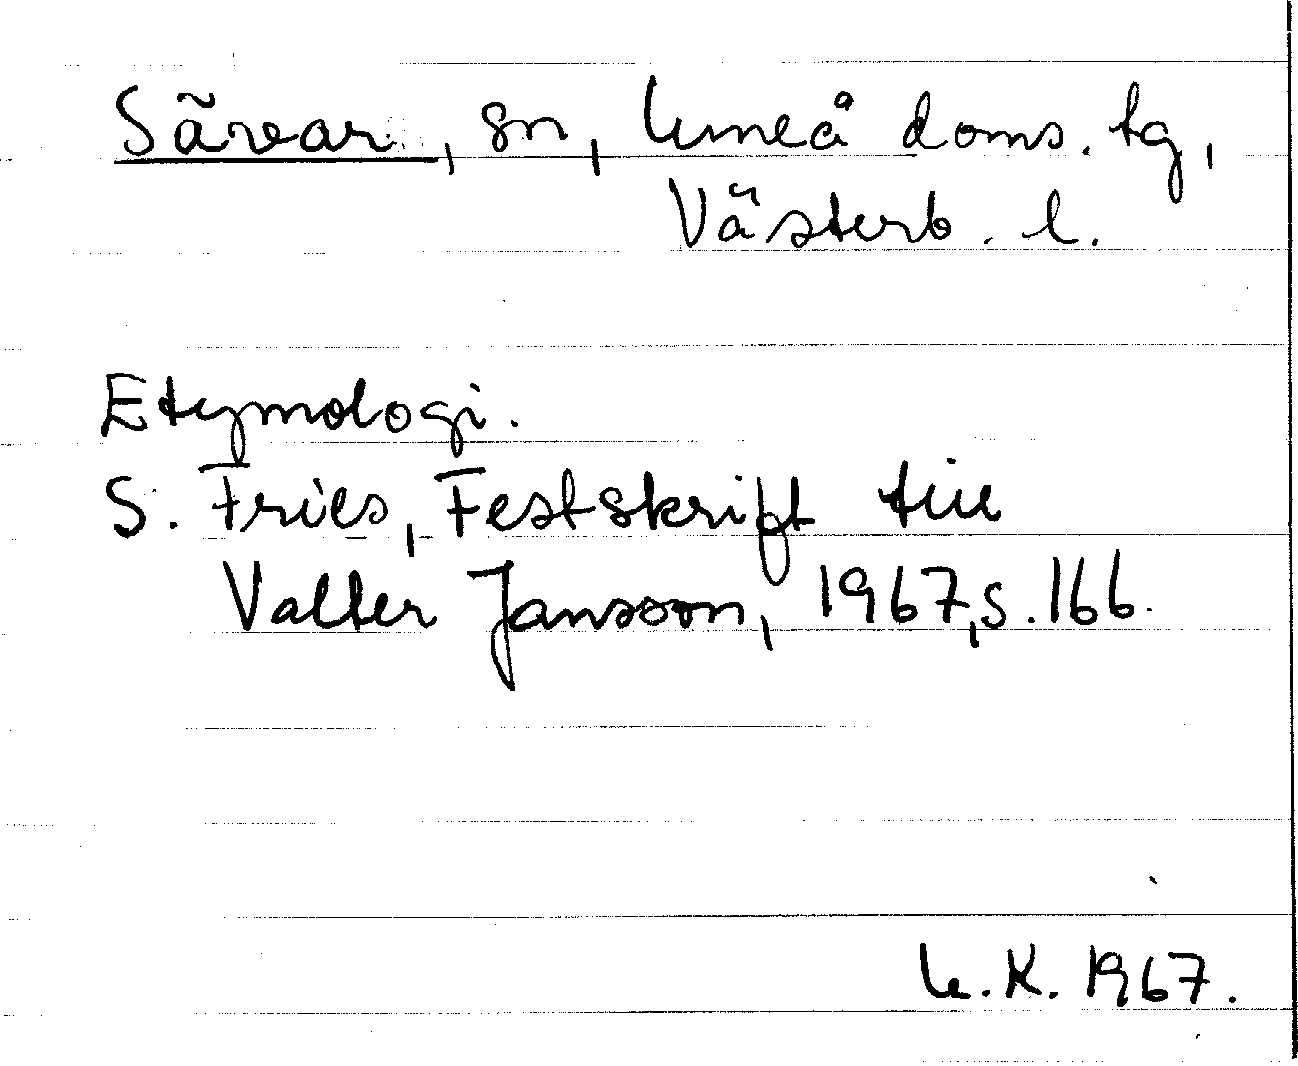 Sävar, sn, Umeå doms. tg,
Västerb. l.
Etymologi.
S. Fries, Festskrift till
Valter Jansson, 1967, s. 166.
U. K. 1967.